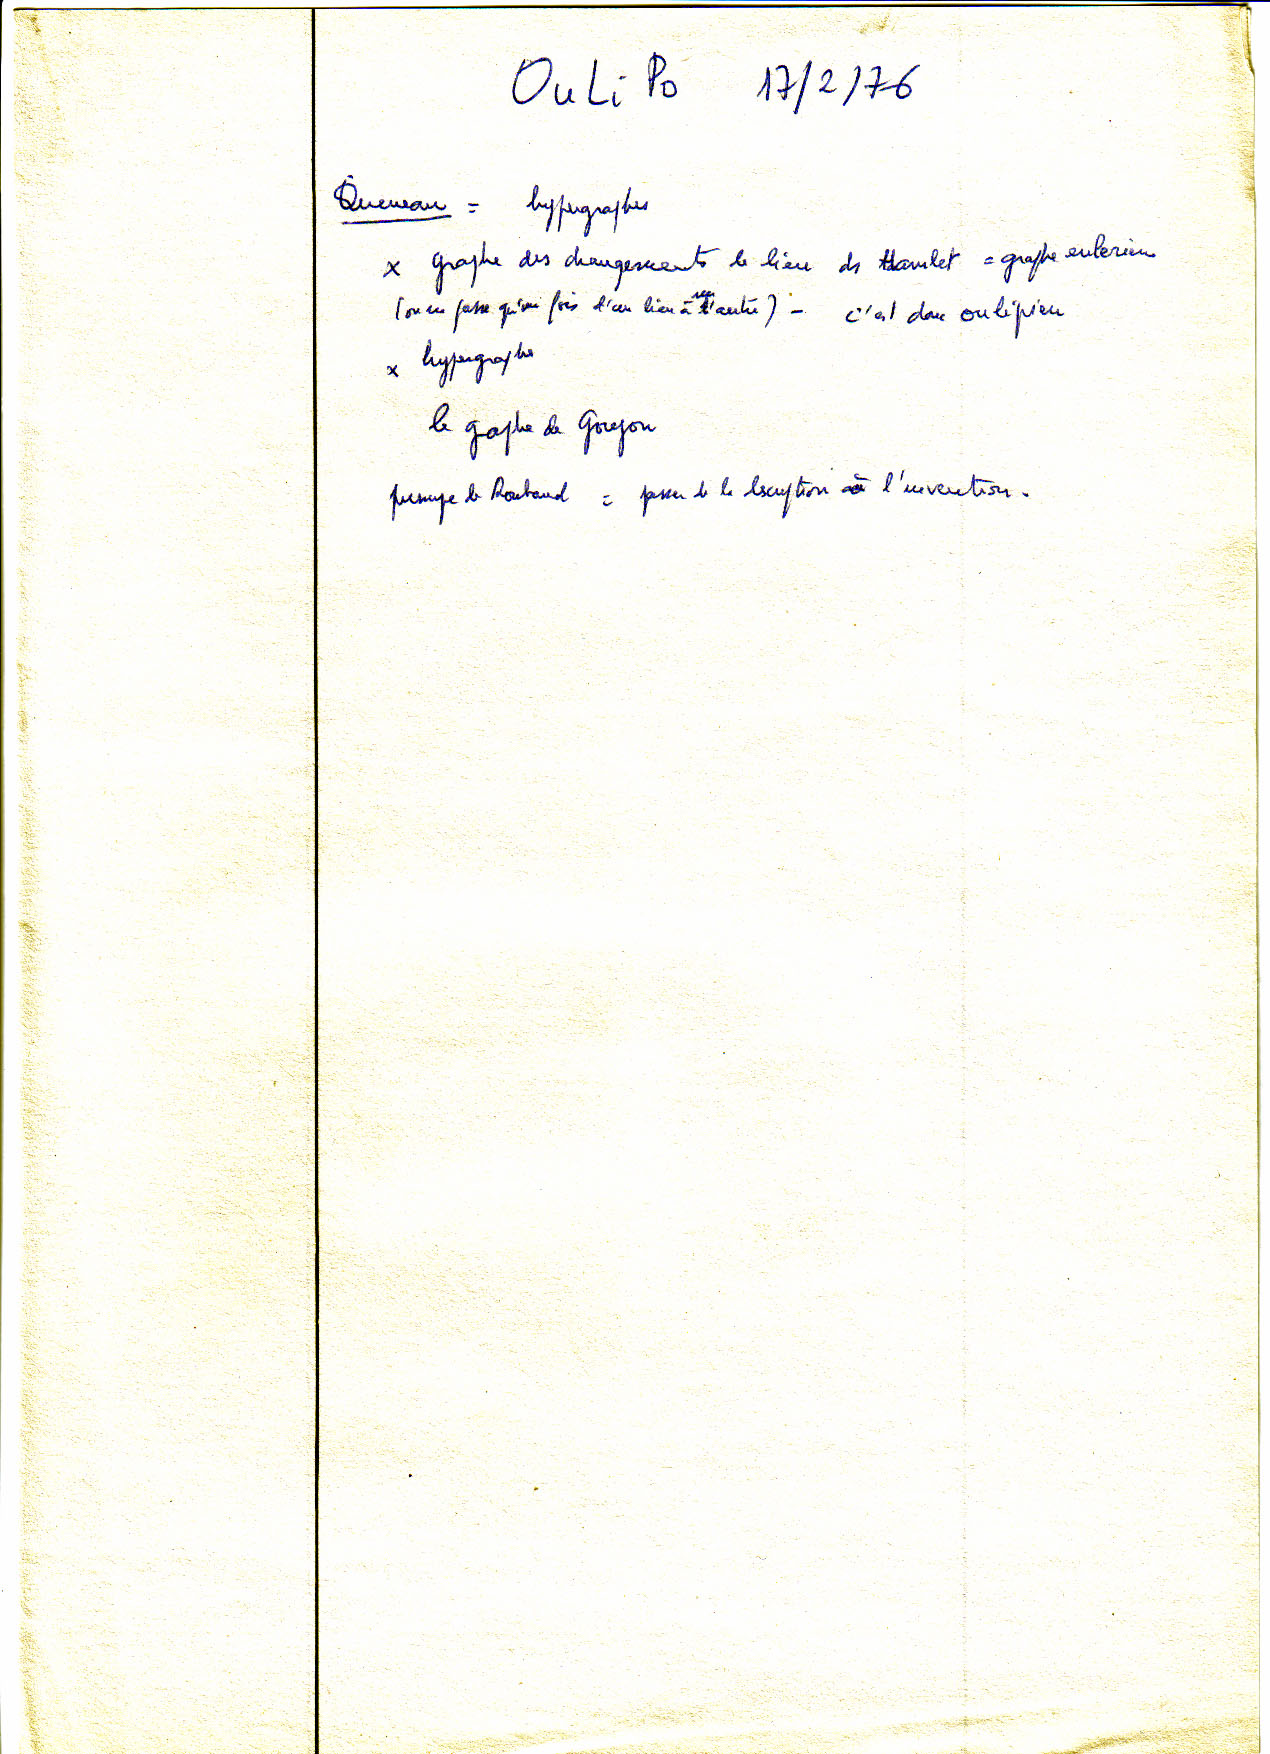 OuLiPo 17/2/76
Queneau = hypergraphes
x graphe des changements de lieu ds Hamlet = graphe eulerien
(on ne passe qu'une fois d'un lieu à l'autre) - c'est donc oulipien
x hypergraphe
le graphe de Goujon
de Roubaud = passer de la description à l'invention.